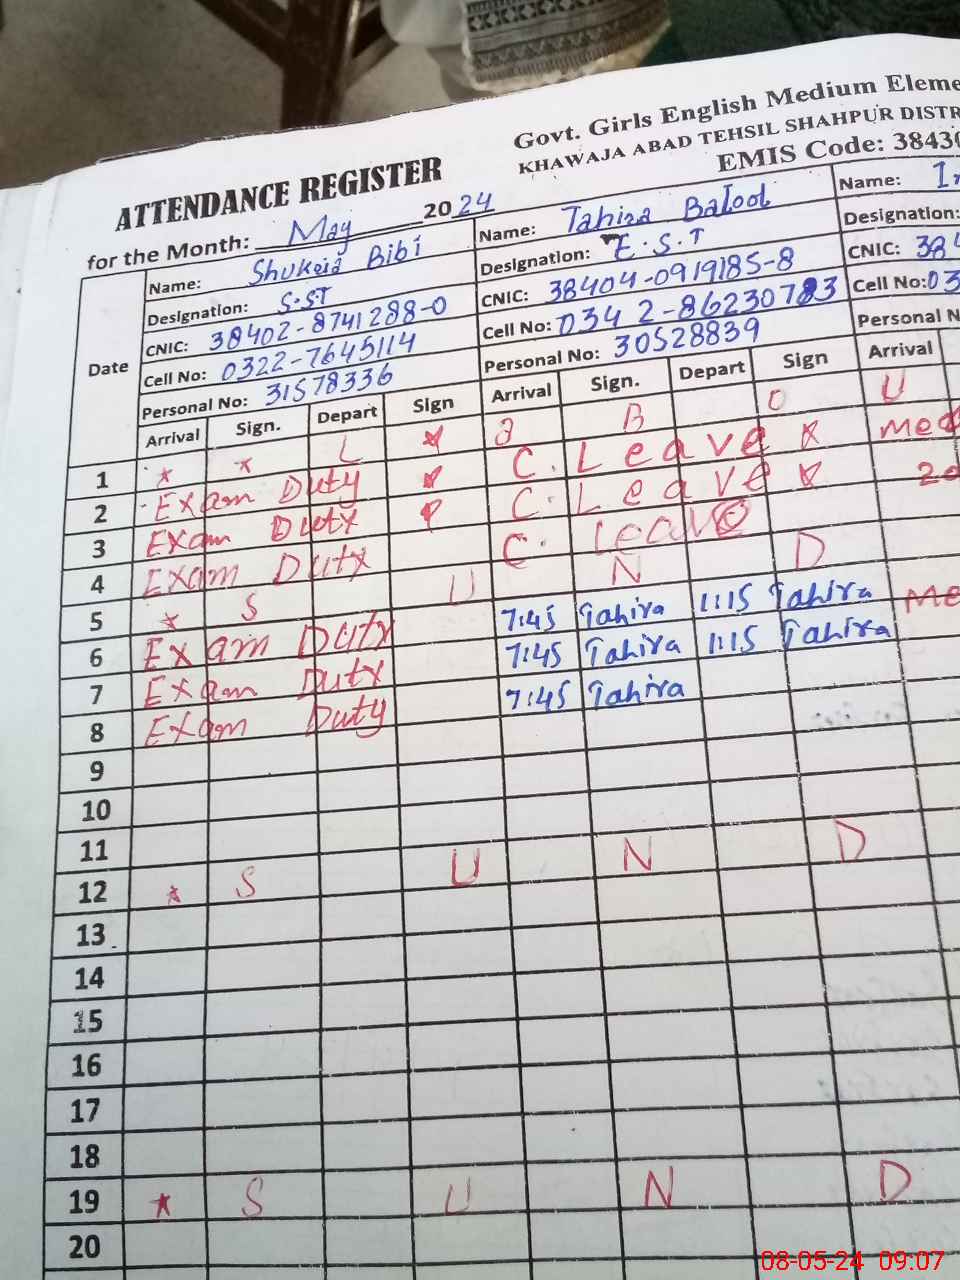 Govt. Girls English Medium Eleme
KHAWAJA ABAD TEHSIL SHAHPUR DISTR
EMIS Code: 38430
ATTENDANCE REGISTER
for the Month: May 2024
Date
Name: Bibi
Designation: S.S.T
CNIC: 38402-8741288-0
Cell No: 0322-7645114
Personal No: 31578336
Name: Tahira Batool
Designation: E.S.T
CNIC: 38404-0919185-8
Cell No: 0342-8623078 3
Personal No: 30528839
Name: Ir
Designation:
CNIC: 384
Cell No: 03
Personal N
Arrival Sign. Depart Sign Arrival Sign. Depart Sign Arrival
1 * * L * a B O U
2 Exam Duty * C. Leave * Med
3 Exam Duty * C. Leave * 20
4 Exam Duty C. Leave
5 * S U N D
6 Exam Duty 7:45 Tahira 1:15 Tahira Me
7 Exam Duty 7:45 Tahira 1:15 Tahira
8 Exam Duty 7:45 Tahira
9
10
11
12 * S U N D
13
14
15
16
17
18
19 * S U N D
20
08-05-24 09:07